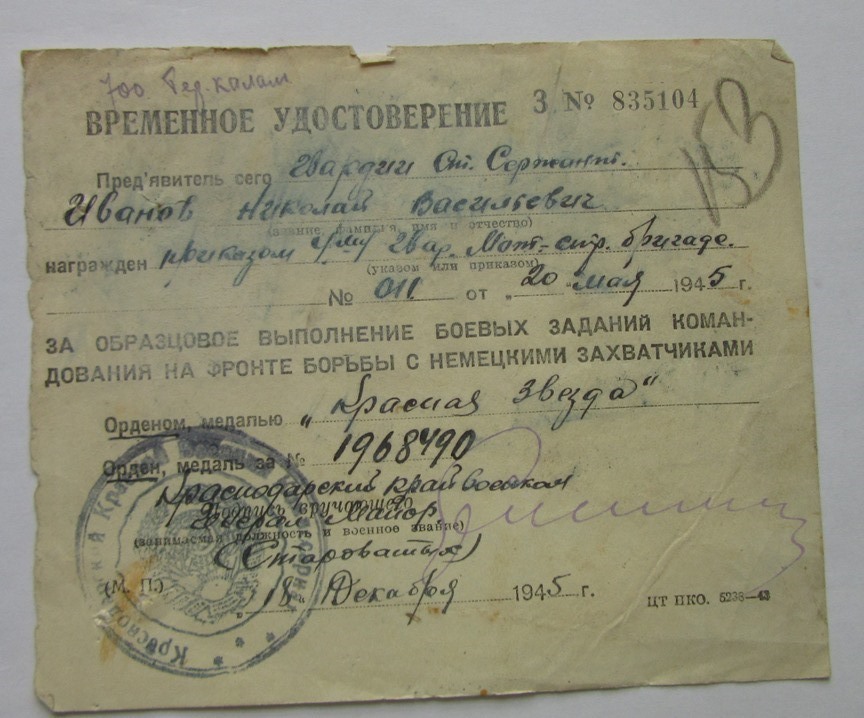 700
ВРЕМЕННОЕ УДОСТОВЕРЕНИЕ З № 835104
153
Пред'явитель сего Гвардии Ст. Сержант.
Иванов Николай Васильевич
(звание, фамилия, имя и отчество)
награжден приказом Гвар. Мот-стр. бригаде.
(указом или приказом)
№ 011 от „20 мая 1945 г.
ЗА ОБРАЗЦОВОЕ ВЫПОЛНЕНИЕ БОЕВЫХ ЗАДАНИЙ КОМАН-
ДОВАНИЯ НА ФРОНТЕ БОРЬБЫ С НЕМЕЦКИМИ ЗАХВАТЧИКАМИ
Орденом, медалью „Красная Звезда"
Орден, медаль за № 1968490
Краснодарский край военком
Подпись вручающего
Майор
(занимаемая должность и военное звание)
(Староватых)
(М. П.) „18" Декабря 1945 г.
ЦТ НКО. 5238—43
Краснодарский Краевой Военный